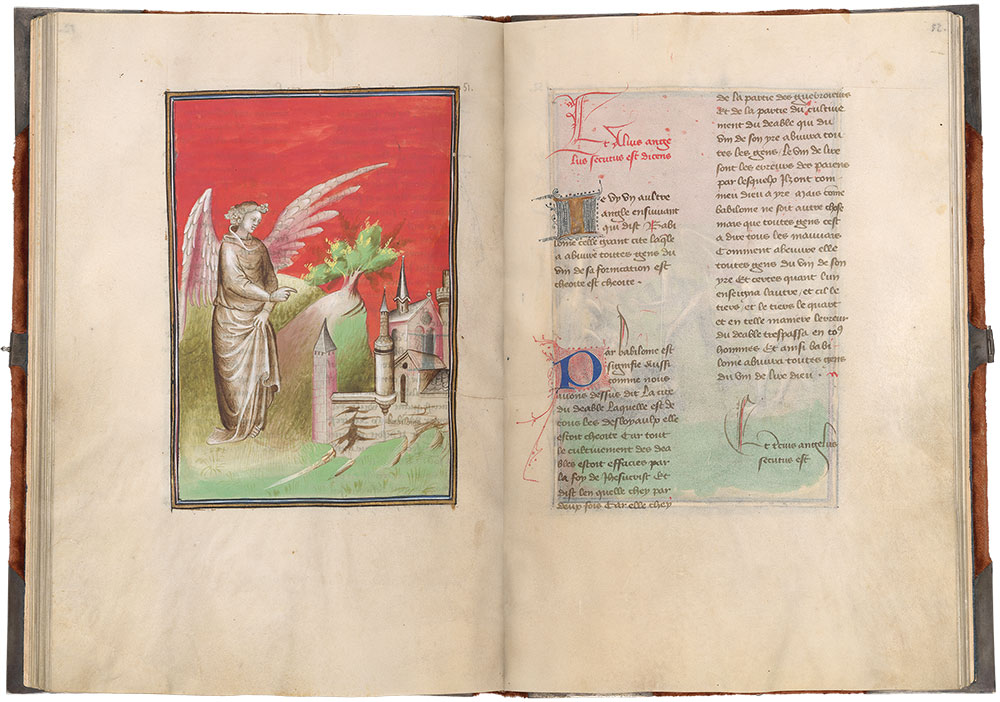 51.
52
Et Alius ange
lus secutus est dicens
Je vy vn aultre
angle ensuiuant
qui dist Babi
lonie celle grant cite laqle
a abuure toutes gens du
vin de sa fornication est
cheoite est cheoite .
Par babilonie est
signifie Aussi
comme nous
auons dessus dit La cite
du deable Laquelle est de
tous les desloyaulx elle
estoit cheoite Car tout
le cultiuement des dea
bles estoit effacies par
la foy de Jhesucrist Et
dist len quelle chey par
deux fois Car elle chey
de la partie des
Et de la partie du cultiue
ment du deable qui du
vin de son yre abuura tou
tes les gens . Le vin de lire
sont les erreurs des parens
par lesquelz Ilz ont com
meu dieu a yre Mais come
babilonie ne soit autre chose
mais que toutes gens cest
a dire tous les mauuais
Comment abeuure elle
toutes gens du vin de son
yre Et certes quant lun
enseigna lautre, et cil le
tiers, et le tiers le quart
et en telle maniere lerreur
du deable trespassa en toꝰ
hommes Et ainsi babi
lonie abuura toutes gens
du vin de lire dieu .
Et tercius angelus
secutus est